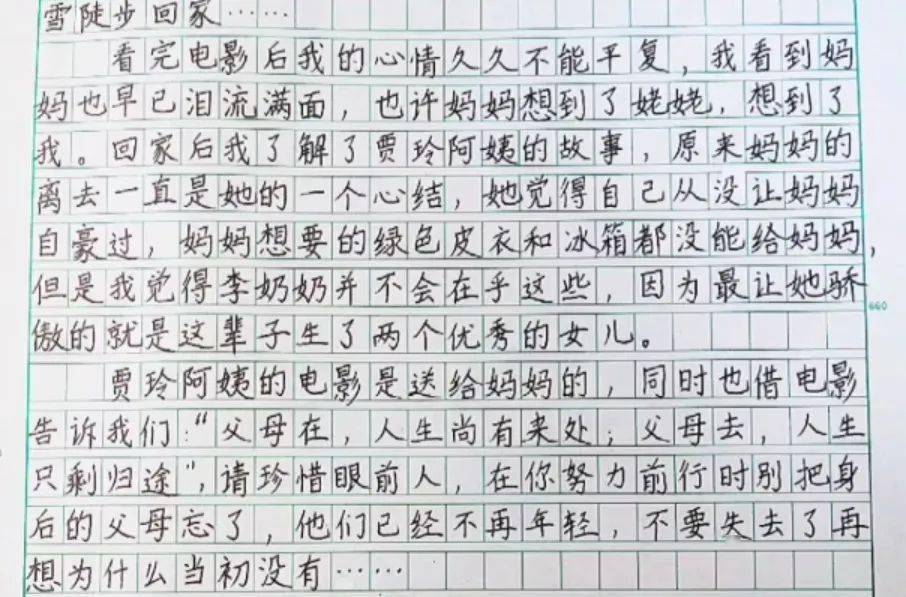 雪陡步回家……
看完电影后我的心情久久不能平复，我看到妈
妈也早已泪流满面，也许妈妈想到了姥姥，想到了
我。回家后我了解了贾玲阿姨的故事，原来妈妈的
离去一直是她的一个心结，她觉得自己从没让妈妈
自豪过，妈妈想要的绿色皮衣和冰箱都没能给妈妈，
但是我觉得李奶奶并不会在乎这些，因为最让她骄
傲的就是这辈子生了两个优秀的女儿。
660
贾玲阿姨的电影是送给妈妈的，同时也借电影
告诉我们："父母在，人生尚有来处；父母去，人生
只剩归途"，请珍惜眼前人，在你努力前行时别把身
后的父母忘了，他们已经不再年轻，不要失去了再
想为什么当初没有……